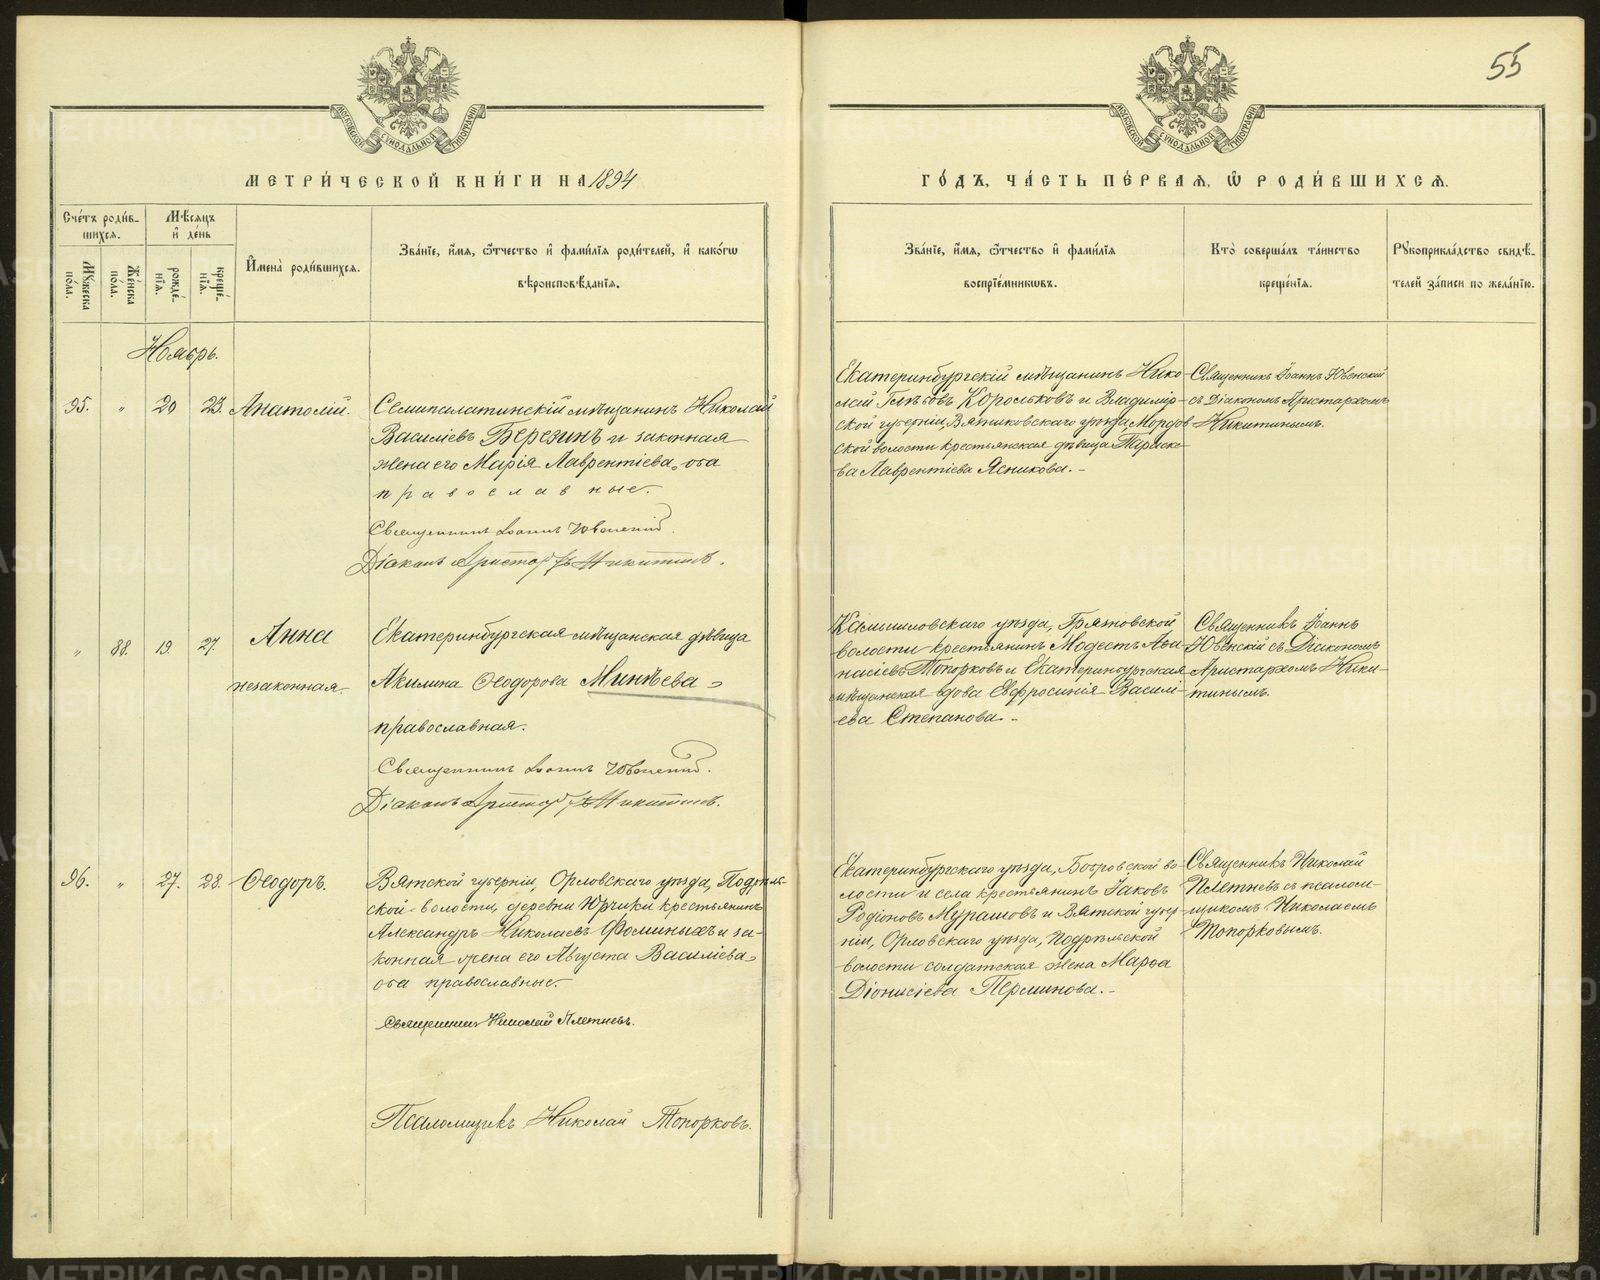 55
МОСКОВСКОЙ СѴНОДАЛЬНОЙ ТИПОГРАФІИ
МЕТРИ́ЧЕСКОЙ КНИ́ГИ НА 1894
Сче́тъ роди́в-
шихсѧ.
Мѣ́сѧцъ
и҆ де́нь
Мꙋ́жеска по́ла.
Же́нска по́ла.
рожде́-
нїѧ.
креще́-
нїѧ.
И҆мена̀ роди́вшихсѧ.
Зва́нїе, и҆́мѧ, ѻ҆́тчество и҆ фами́лїѧ роди́телей, и҆ како́гѡ
вѣроисповѣ́данїѧ.
Ноябрь.
95. „ 20 23. Анатолій.
Семипалатинскій мѣщанинъ Николай
Василіевъ Березинъ и законная
жена его Марія Лаврентіева, оба
православные.
Священникъ Іоаннъ Ювенскій.
Діаконъ Аристархъ Никитинъ.
„ 88. 19 27. Анна
незаконная.
Екатеринбургская мѣщанская дѣвица
Акилина Ѳеодорова Минѣева,
православная.
Священникъ Іоаннъ Ювенскій.
Діаконъ Аристархъ Никитинъ.
96. „ 27. 28. Ѳеодоръ.
Вятской губерніи, Орловскаго уѣзда, Подрѣль-
ской волости, деревни Юрчики крестьянинъ
Александръ Николаевъ Фоминыхъ и за-
конная жена его Августа Василіева,
оба православные.
Священникъ Николай Плетневъ.
Псаломщикъ Николай Топорковъ.
МОСКОВСКОЙ СѴНОДАЛЬНОЙ ТИПОГРАФІИ
ГО́ДЪ, ЧА́СТЬ ПЕ́РВАЯ, Ѡ҆ РОДИ́ВШИХСЯ.
Зва́нїе, и҆́мѧ, ѻ҆́тчество и҆ фами́лїѧ
воспрїе́мникѡвъ.
Кто̀ соверша́лъ та́инство
креще́нїѧ.
Рꙋкоприкла́дство свидѣ́-
телей за́писи по жела́нїю.
Екатеринбургскій мѣщанинъ Нико-
лай Глѣбовъ Корольковъ и Владимір-
ской губерніи, Вязниковскаго уѣзда, Мордов-
ской волости крестьянская дѣвица Параске-
ва Лаврентіева Ясникова.-
Священникъ Іоаннъ Ювенскій
съ Діакономъ Аристархомъ
Никитинымъ.
Камышловскаго уѣзда, Грязновской
волости крестьянинъ Модестъ Аѳа-
насіевъ Топорковъ и Екатеринбургская
мѣщанская вдова Евфросинія Василі-
ева Степанова.-
Священникъ Іоаннъ
Ювенскій съ Діакономъ
Аристархомъ Ники-
тинымъ.
Екатеринбургскаго уѣзда, Бобровской во-
лости и села крестьянинъ Іаковъ
Родіоновъ Мурашовъ и Вятской губер-
ніи, Орловскаго уѣзда, Подрѣльской
волости солдатская жена Марѳа
Діонисіева Перминова.-
Священникъ Николай
Плетневъ съ псалом-
щикомъ Николаемъ
Топорковымъ.
METRIKI.GASO-URAL.RU